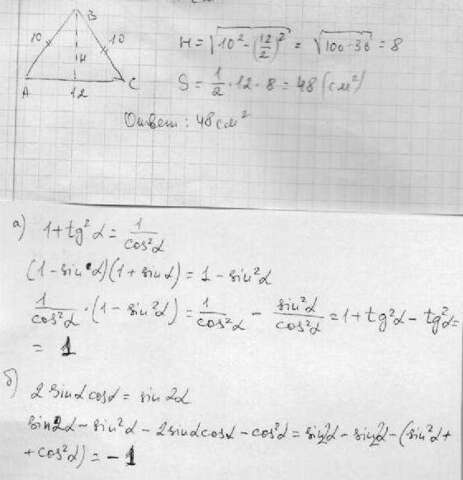 B
10 10
H
A C
12
H = √(10² - (12/2)²) = √(100-36) = 8
S = 1/2 · 12 · 8 = 48 (см²)
Ответ: 48 см²
а) 1 + tg²α = 1/cos²α
(1 - sin α)(1 + sin α) = 1 - sin²α
1/cos²α · (1 - sin²α) = 1/cos²α - sin²α/cos²α = 1 + tg²α - tg²α =
= 1
б)
2 sinα cosα = sin 2α
sin2α - sin²α - 2sinα cosα - cos²α = sin2α - sin2α - (sin²α +
+ cos²α) = -1